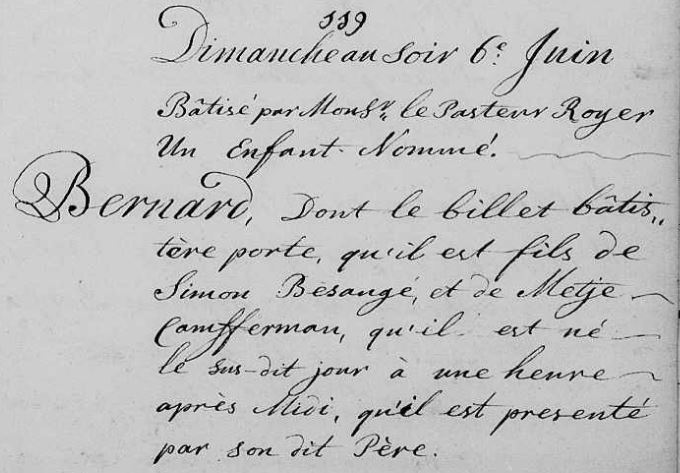 119
Dimanche au soir 6e. Juin
Bâtisé par Monsr. le Pasteur Royer
Un Enfant Nommé.
Bernard, Dont le billet bâtis„
tère porte, qu'il est fils de
Simon Besangé, et de Metje
Camfferman, qu'il est né
le sus-dit jour à une heure
après Midi, qu'il est presenté
par son dit Père.